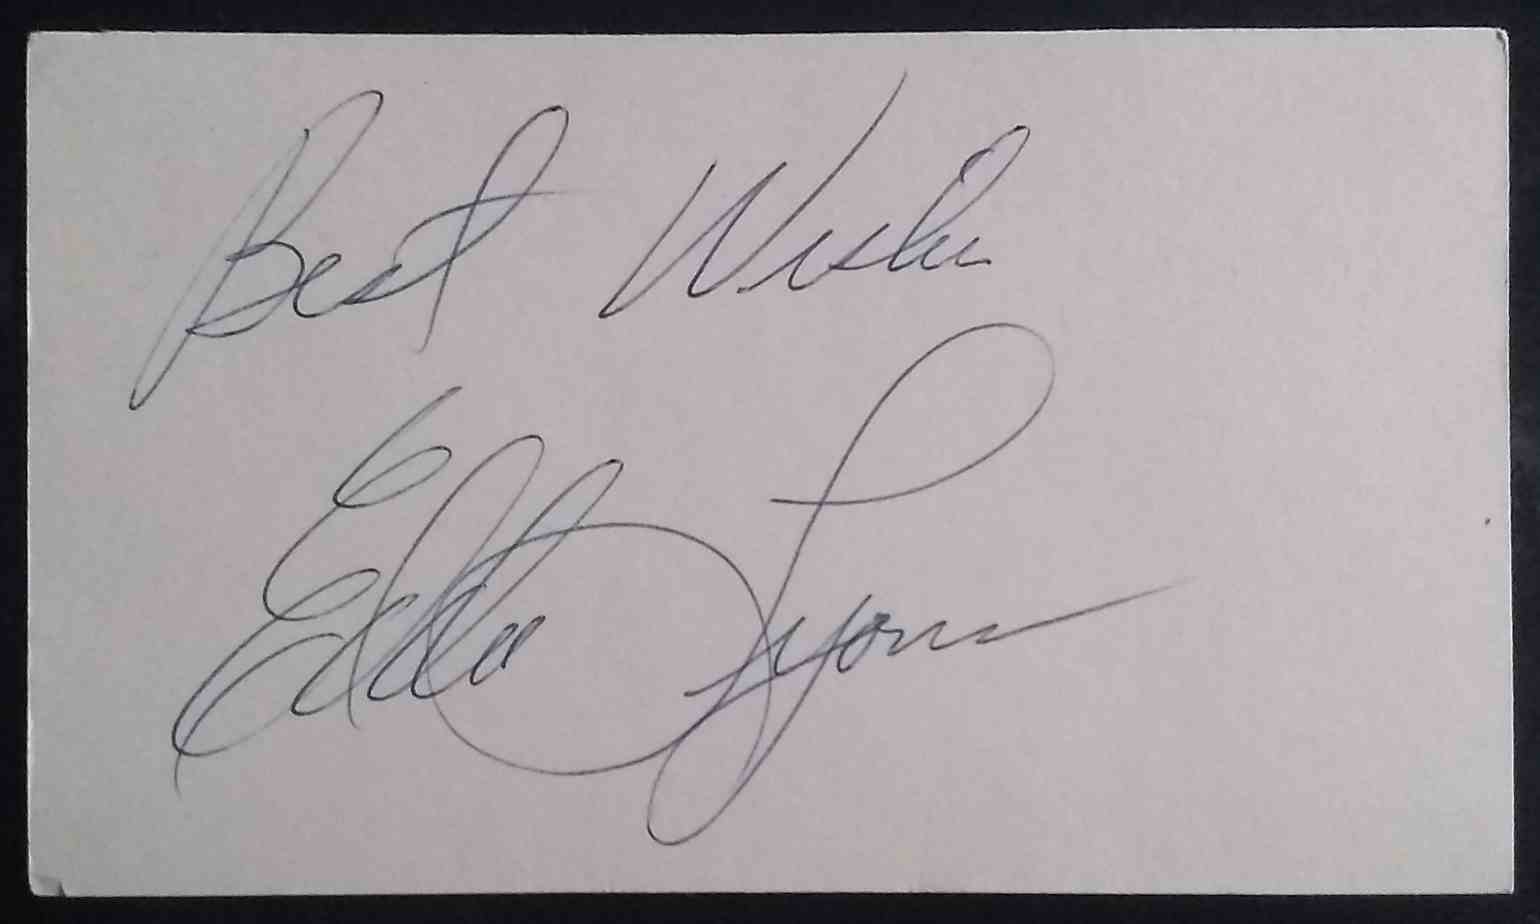 Best Wishes
Eddie Lyons